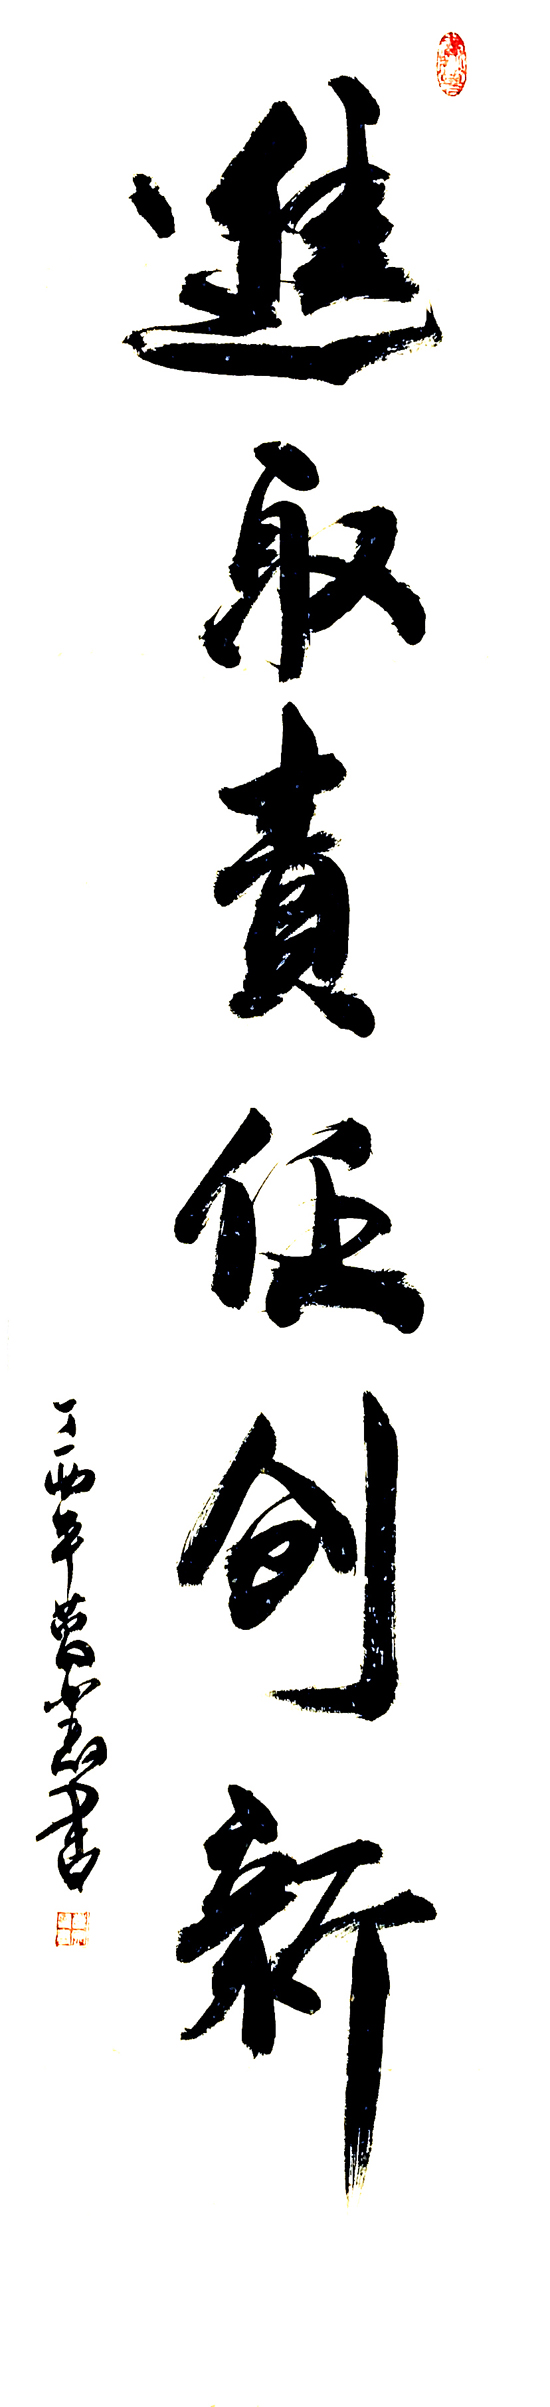 進取責任創新
丁酉年曹
書